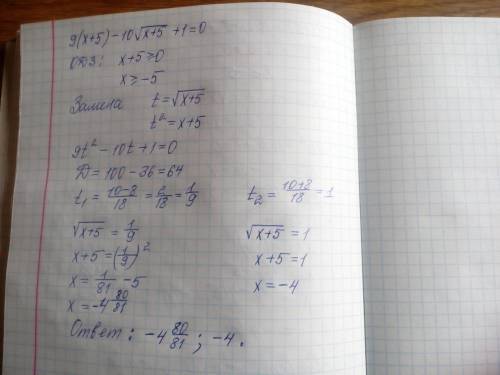 9(x+5)-10√x+5 +1=0
ОДЗ: x+5≥0
x≥-5
Замена t=√x+5
t²=x+5
9t²-10t+1=0
D=100-36=64
t₁=10-8/18=2/18=1/9
t₂=10+8/18=1
√x+5=1/9
x+5=(1/9)²
x=1/81-5
x=-4 80/81
√x+5=1
x+5=1
x=-4
Ответ: -4 80/81; -4.